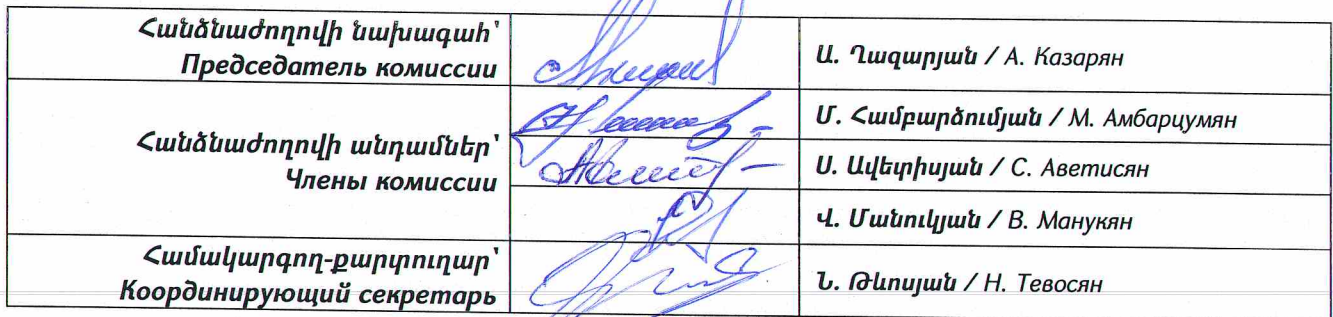 Հանձնաժողովի նախագահ՝
Председатель комиссии
Ա. Ղազարյան / А. Казарян
Հանձնաժողովի անդամներ՝
Члены комиссии
Մ. Համբարձումյան / М. Амбарцумян
Ս. Ավետիսյան / С. Аветисян
Վ. Մանուկյան / В. Манукян
Համակարգող-քարտուղար՝
Координирующий секретарь
Ն. Թևոսյան / Н. Тевосян